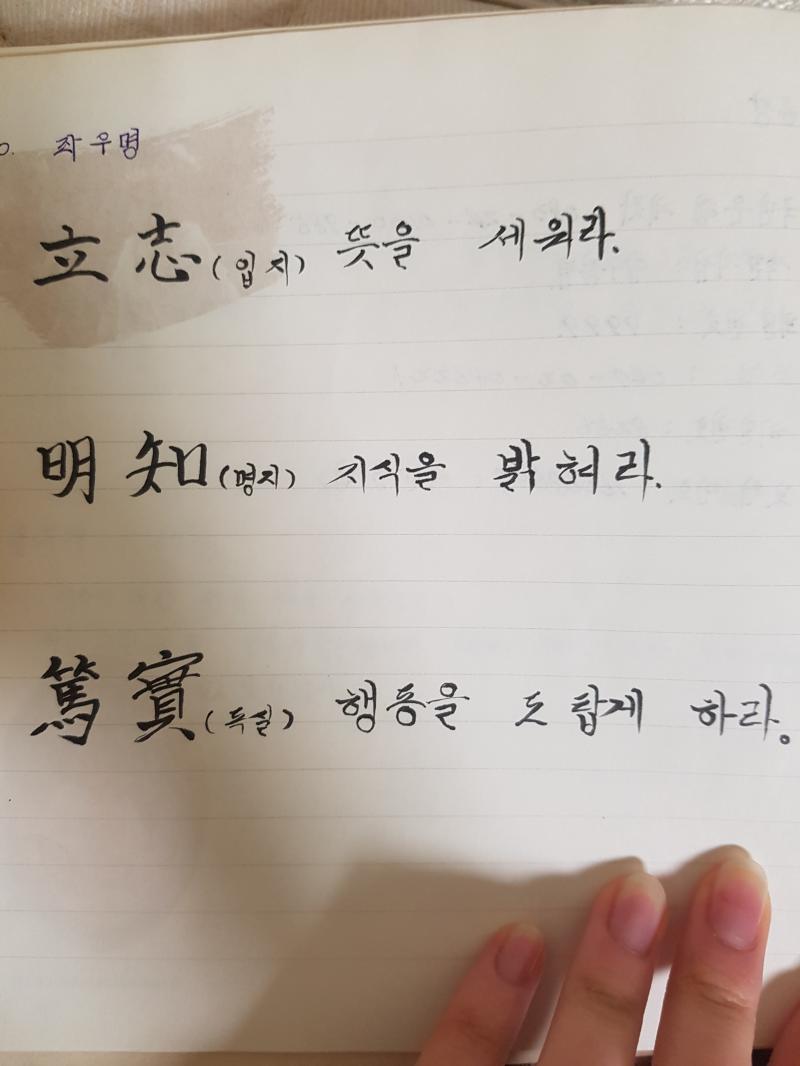 0. 좌우명
立志(입지) 뜻을 세워라.
明知(명지) 지식을 밝혀라.
篤實(독실) 행동을 도탑게 하라。